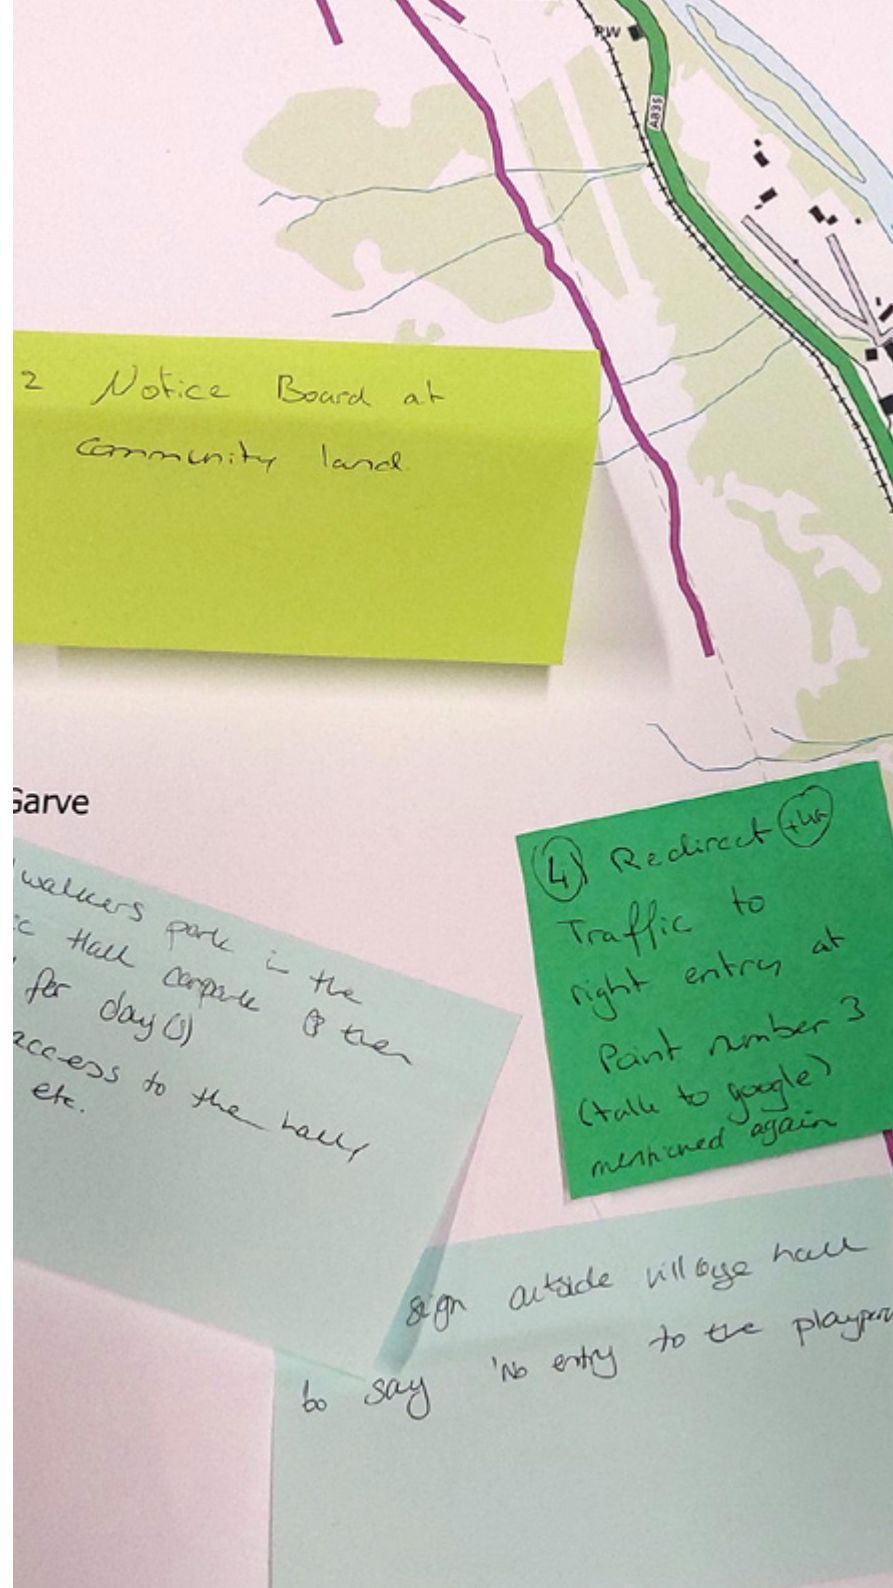 PW
A835
2 Notice Board at
community land.
Garve
walkers park in the
Hall carpark & then
for day(s)
access to the hall,
etc.
(4) Redirect
Traffic to
right entry at
Point number 3
(talk to google)
mentioned again
sign outside village hall
to say 'No entry to the